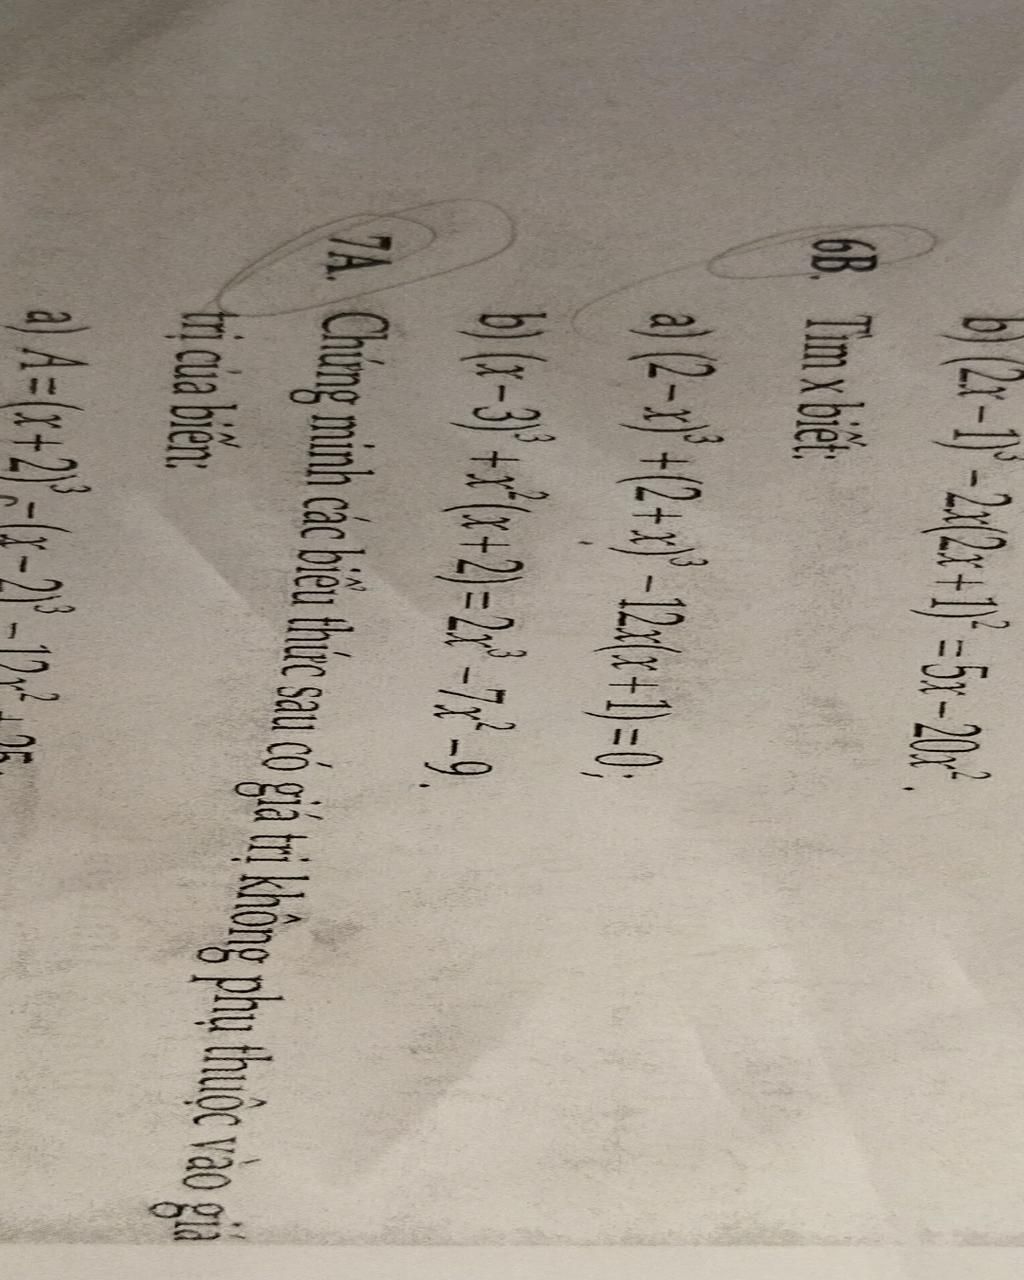 b) (2x − 1)³ − 2x(2x + 1)² = 5x − 20x².
6B. Tìm x biết:
a) (2 − x)³ + (2 + x)³ − 12x(x + 1) = 0;
b) (x − 3)³ + x²(x + 2) = 2x³ − 7x² − 9.
7A. Chứng minh các biểu thức sau có giá trị không phụ thuộc vào giá
trị của biến:
a) A = (x + 2)³ − (x − 2)³ − 12x² +